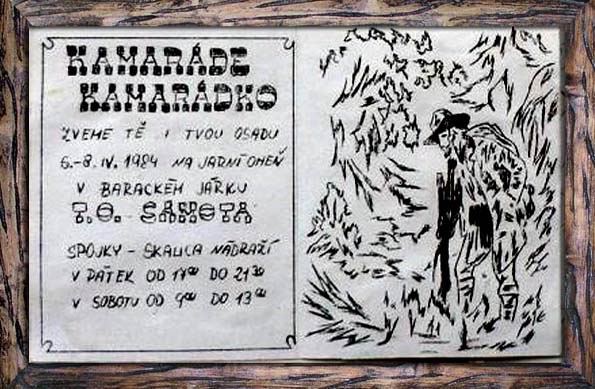 KAMARÁDE
KAMARÁDKO
ZVEME TĚ I TVOU OSADU
6.-8.IV. 1984 NA JARNÍ OHEŇ
V BARACKÉM JÁRKU
T.O. SAMOTA
SPOJKY - SKALICA NÁDRAŽÍ
V PÁTEK OD 17⁰⁰ DO 21³⁰
V SOBOTU OD 9⁰⁰ DO 13⁰⁰